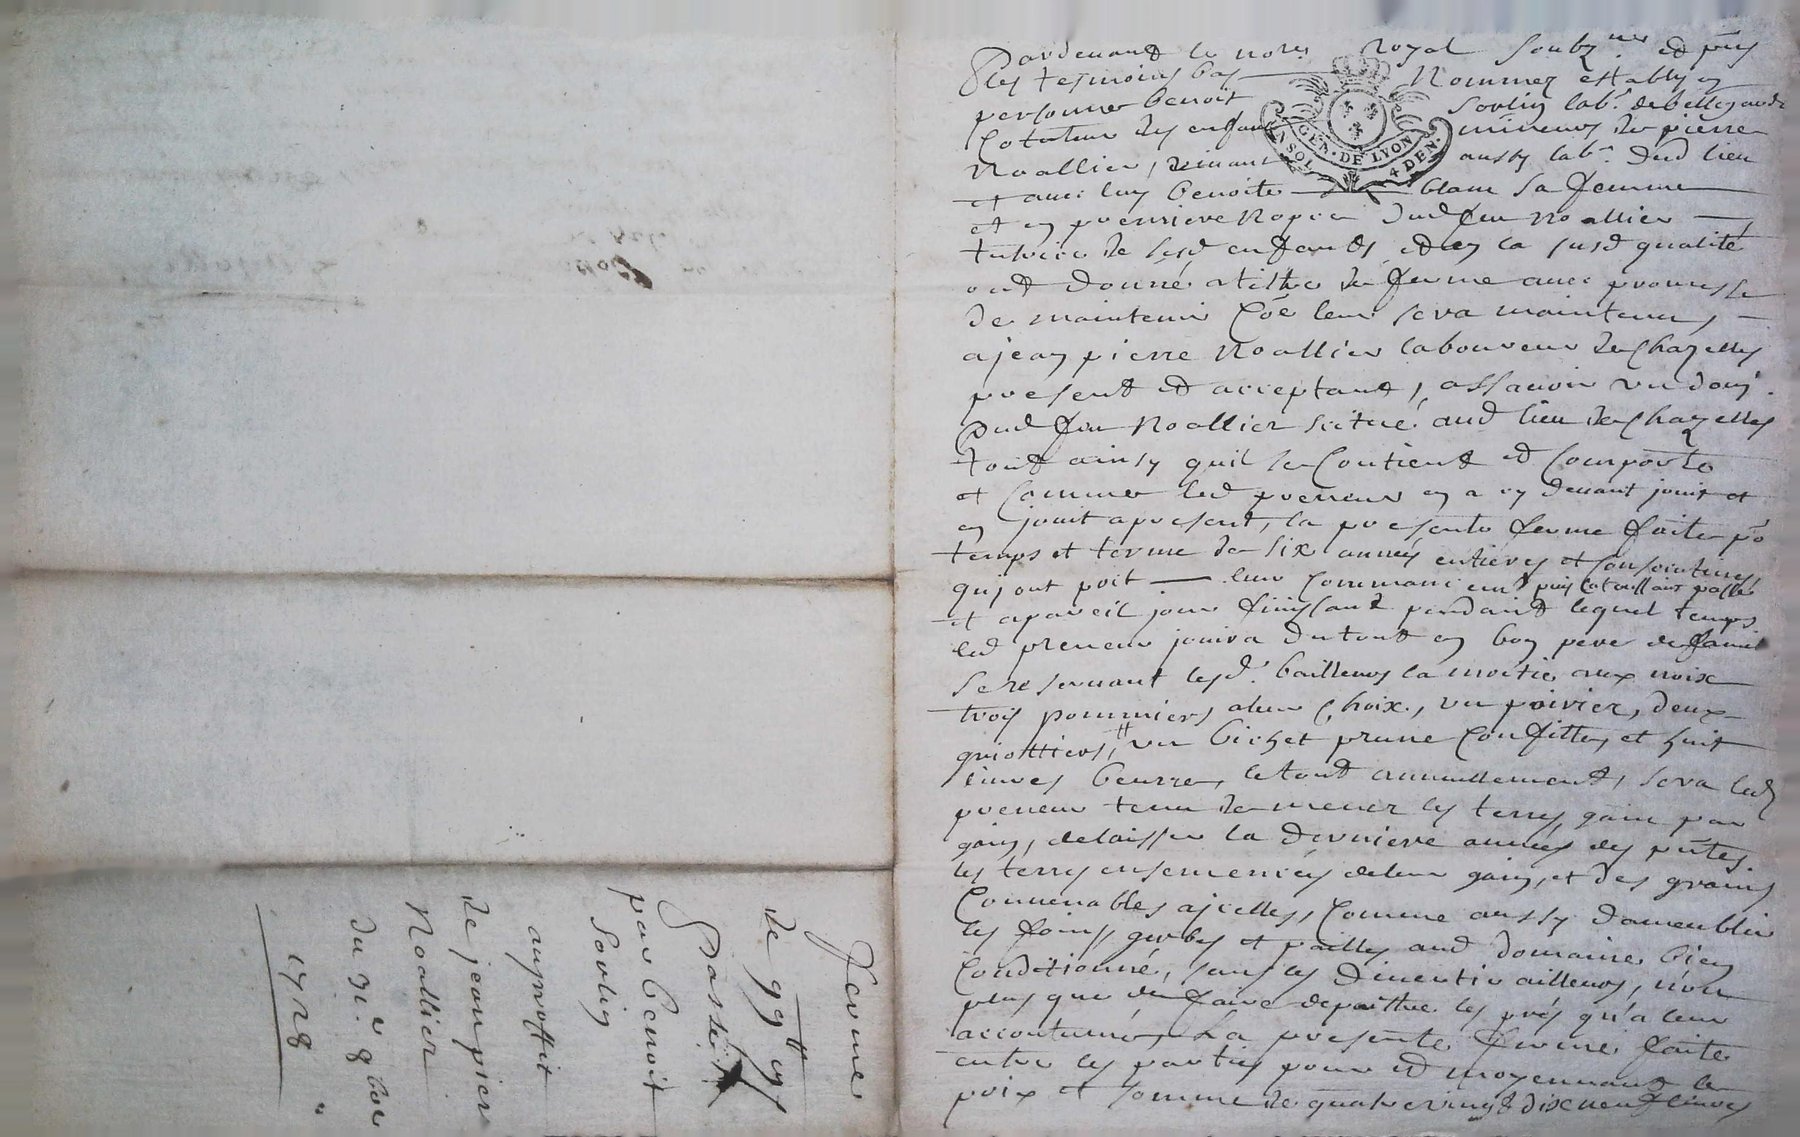 Pardevant le nore. royal soubzné. et pñs
les tesmoins bas nommez estably en
personne benoit sovlin labr. de bellegarde
Cotuteur des enfans mineurs de pierre
Noallier, vivant aussy labr. dud lieu
et avec luy benoite blanc sa femme
et en premiere Nopce dud feu Noallier
tutrice de sesd enfants, et en la susd qualité
ont donné a tiltre de ferme avec promesse
de maintenir Coe leur sera maintenu,
a jean pierre Noallier laboureur de Chazelles
present et acceptant, assavoir un dom.
dud feu Noallier scitué aud lieu de Chazelles
tout ainsy quil se Contient et Comporte
et Comme led preneur en a cy devant jouit et
en jouit apresent, la presente ferme faite po
temps et terme de six années entieres et Consecutives
qui ont puis la toussaint passé
et a pareil jour finissant pendant lequel temps
led preneur jouira du tout en bon pere de famil
se reservant lesd. bailleurs la moitié aux noix
trois pommiers a leur Choix, un poirier, deux
griottiers, un bichet prune Confitte, et huit
livres beurre, le tout annuellement, sera led
preneur tenu de mener les terres gain par
gain, delaisser la derniere année des pñtes
les terres ensemencées de leur gain, et des grains
Convenables a jcelles, Comme aussy dameublir
les foins, gerbes et pailles aud domaine bien
Conditionné, sans les divertir ailleurs, non
plus que de faire depaitre les prés qu'a leur
accoutumé, La presente ferme faite
entre les parties pour et moyennant le
prix et somme de quatre vingt dix neuf livres
GEN. DE LYON
SOL 4 DEN.
ferme
de 99tt
Passé
par benoit
Sovlin
au proffit
de jean pier
Noallier
du 31e 8bre
1728